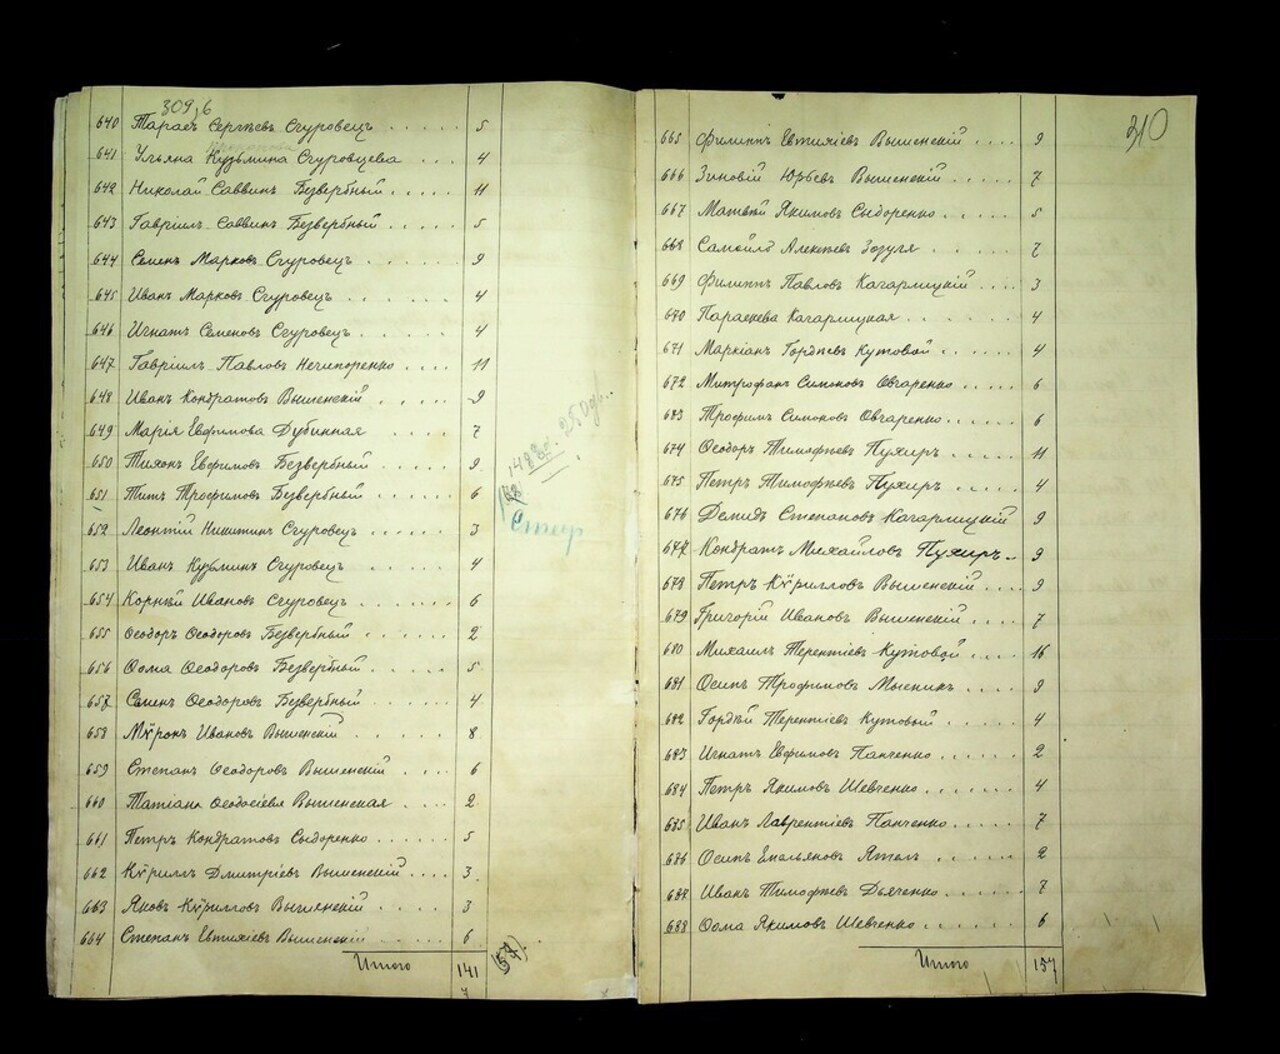 309,6
640 Тарасъ Сергѣевъ Згуровецъ . . . . . 5
641 Ульяна Кузьмина Згуровцева . . . 4
642 Николай Саввинъ Безвербный . . . . . 11
643 Гавріилъ Саввинъ Безвербный . . . . . 5
644 Семенъ Марковъ Згуровецъ . . . . . . 9
645 Иванъ Марковъ Згуровецъ . . . . . . 4
646 Игнатъ Семеновъ Згуровецъ . . . . . 4
647 Гавріилъ Павловъ Нечипоренко . . . . 11
648 Иванъ Кондратовъ Вышенскій . . . . . 9
649 Марія Евфимова Дубинная . . . . 7
650 Тихонъ Евфимовъ Безвербный . . . . 9
651 Титъ Трофимовъ Безвербный . . . . . . 6
652 Леонтій Никитинъ Згуровецъ . . . . . . 3
653 Иванъ Кузьминъ Згуровецъ . . . . . . 4
654 Корнѣй Ивановъ Згуровецъ . . . . . . 6
655 Ѳеодоръ Ѳеодоровъ Безвербный . . . . . . 2
656 Ѳома Ѳеодоровъ Безвербный . . . . . 5
657 Семенъ Ѳеодоровъ Безвербный . . . . . 4
658 Мѵронъ Ивановъ Вышенскій . . . . . 8
659 Степанъ Ѳеодоровъ Вышенскій . . . . 6
660 Татіана Ѳеодосіева Вышенская . . . . 2
661 Петръ Кондратовъ Сыдоренко . . . . . 5
662 Кѵриллъ Дмитріевъ Вышенскій . . . . 3
663 Яковъ Кѵрилловъ Вышенскій . . . . . 3
664 Степанъ Евтихіевъ Вышенскій . . . . . 6
Итого 141
148 250
(57)
310
665 Филиппъ Евтихіевъ Вышенскій . . . . 9
666 Зиновій Юрьевъ Вышенскій . . . . . 7
667 Матвѣй Якимовъ Сыдоренко . . . . . 5
668 Самойло Алексѣевъ Зозуля . . . . . 7
669 Филиппъ Павловъ Кагарлицкій . . . . 3
670 Параскева Кагарлицкая . . . . . . 4
671 Маркіанъ Гордѣевъ Кутовой . . . . . 4
672 Митрофанъ Симоновъ Овчаренко . . . . . 6
673 Трофимъ Симоновъ Овчаренко . . . . . 6
674 Ѳеодоръ Тимофѣевъ Пухиръ . . . . . 11
675 Петръ Тимофѣевъ Пухиръ . . . . 4
676 Демидъ Степановъ Кагарлицкій 9
677 Кондратъ Михайловъ Пухиръ . . 9
678 Петръ Кѵрилловъ Вышенскій . . . . 9
679 Григорій Ивановъ Вышенскій . . . . 7
680 Михаилъ Терентіевъ Кутовой . . . . 16
681 Осипъ Трофимовъ Мысникъ . . . . 9
682 Гордѣй Терентіевъ Кутовый . . . . . 4
683 Игнатъ Евфимовъ Панченко . . . . . 2
684 Петръ Якимовъ Шевченко . . . . . . 4
685 Иванъ Лаврентіевъ Панченко . . . . . 7
686 Осипъ Емельяновъ Ятелъ . . . . . . 2
687 Иванъ Тимофѣевъ Дьяченко . . . . . . 7
688 Ѳома Якимовъ Шевченко . . . . . . . 6
Итого 157